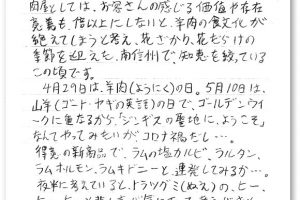 肉屋としては、お客さんの感じる価値や存在
意義も倍以上にしないと、羊肉の食文化が
絶えてしまうと考え、花ざかり、花だらけの
季節を迎えた、南信州で知恵を絞っている
この頃です。
4月29日は、羊肉(ようにく)の日。5月10日は、
山羊(ゴート・ヤギの英語)の日で、ゴールデンウイ
ークに重なるから、「ジンギスの聖地に、ようこそ」
なんてやってみたいが、コロナ禍だし…。
得意の新商品で、ラムの塩カルビ、ラルタン、
ラムホルモン、ラムキドニーと、連発してみるか…。
夜中に考えていると、トラツグミ(ぬえ)の、ヒー、